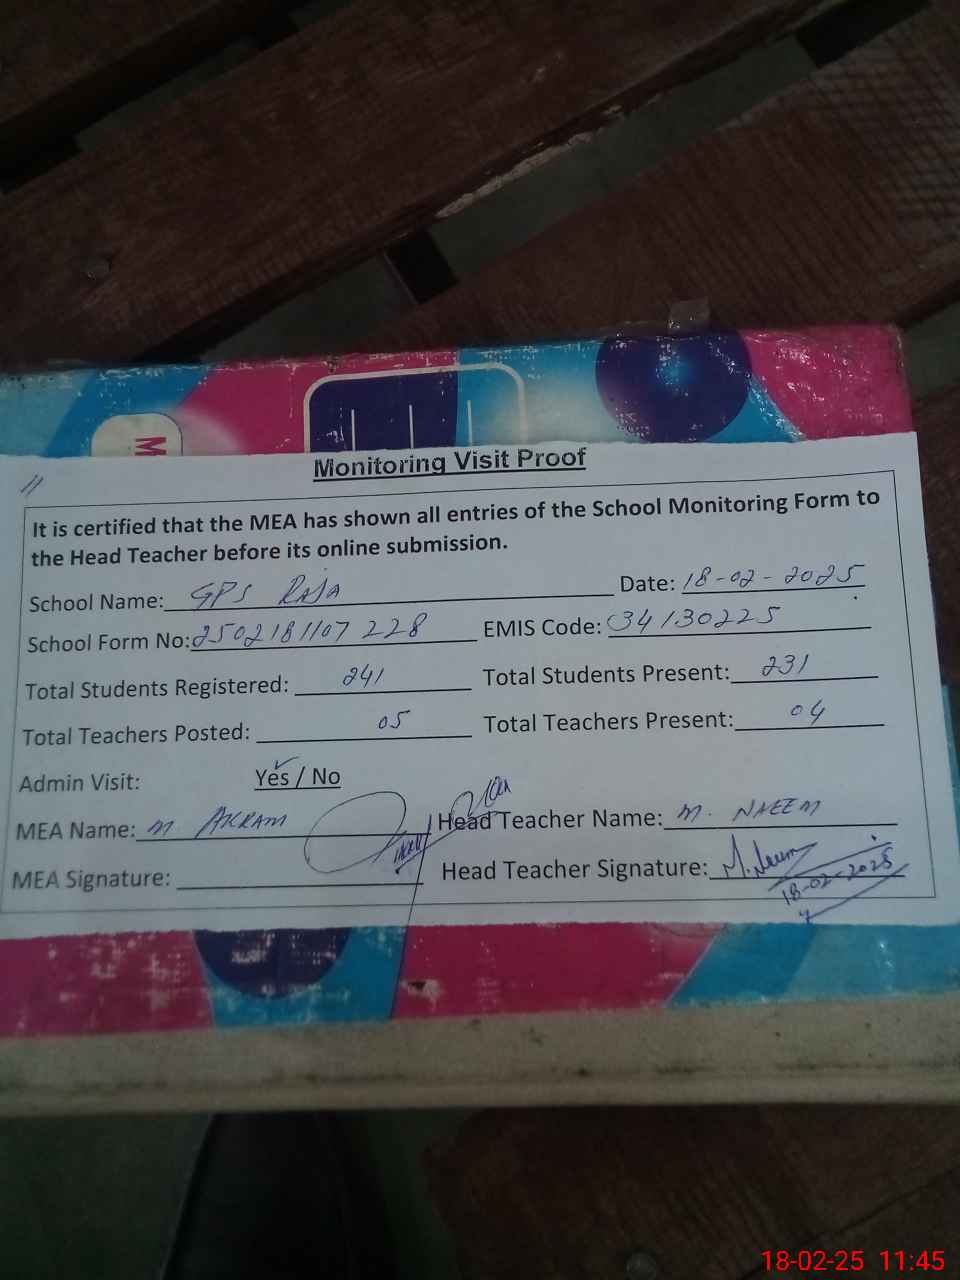 M
Monitoring Visit Proof
11
It is certified that the MEA has shown all entries of the School Monitoring Form to
the Head Teacher before its online submission.
School Name: GPS RAJA Date: 18-02-2025
School Form No: 2502181107228 EMIS Code: 34130225
Total Students Registered: 241 Total Students Present: 231
Total Teachers Posted: 05 Total Teachers Present: 04
Admin Visit: Yes / No
MEA Name: M AKRAM Head Teacher Name: M. NAEEM
MEA Signature: Head Teacher Signature: M.Naeem
18-02-2025
18-02-25 11:45